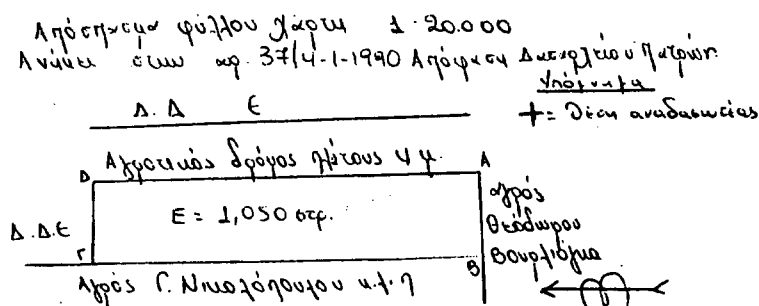 Απόσπασμα φύλλου χάρτη 1:20.000
Ανήκει στην αρ. 37/4-1-1990 Απόφαση Δασαρχείου Πατρών.
Υπόμνημα
+ = Θέση αναδασωτέας
Δ.Δ Ε
Αγροτικός δρόμος πλάτους 4 μ.
Δ Α
Ε = 1,050 στρ.
αγρός
Θεόδωρου
Βουρλιόγκα
Δ.Δ.Ε
Γ Β
Αγρός Γ. Νικολόπουλου κ.λ.π